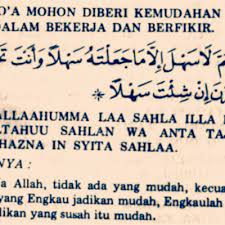 O'A MOHON DIBERI KEMUDAHAN
DALAM BEKERJA DAN BERFIKIR.
لَا سَهْلَ إِلَّا مَا جَعَلْتَهُ سَهْلًا وَأَنْتَ
إِنْ شِئْتَ سَهْلًا
ALLAAHUMMA LAA SAHLA ILLA
LTAHUU SAHLAN WA ANTA TA
HAZNA IN SYITA SAHLAA.
NYA :
a Allah, tidak ada yang mudah, kecua
yang Engkau jadikan mudah, Engkaulah
dikan yang susah itu mudah.